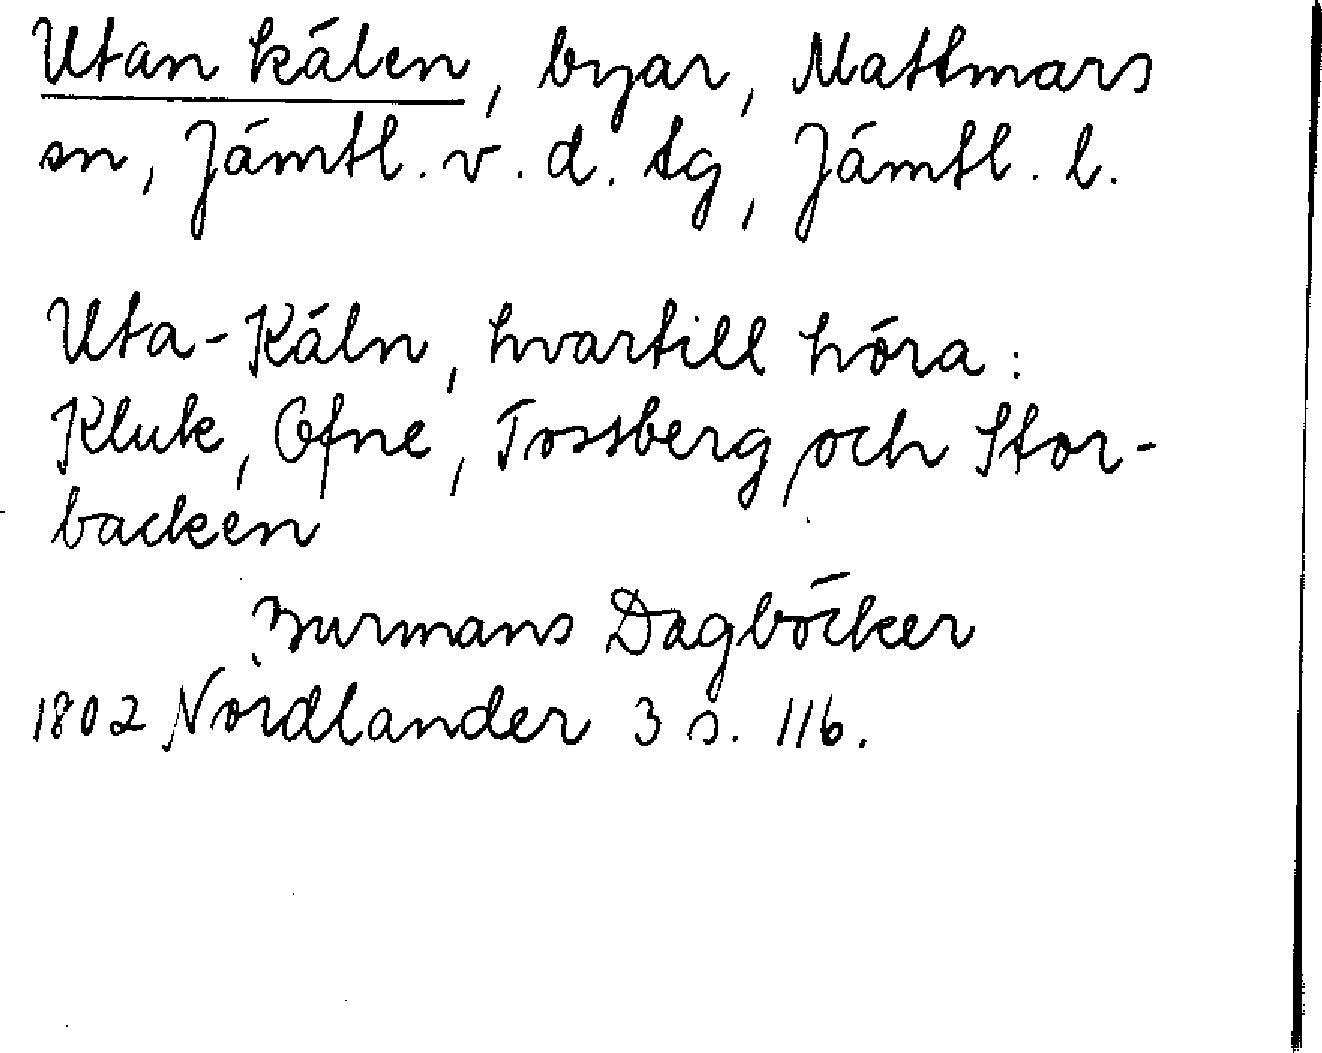 Utan kälen, byar, Mattmars
sn, Jämtl. v. d. tg, Jämtl. l.
Uta-Käln, hvartill höra:
Kluk, Ofne, Tossberg, och Stor-
backen
Burmans Dagböcker
1802 Nordlander 3 s. 116.